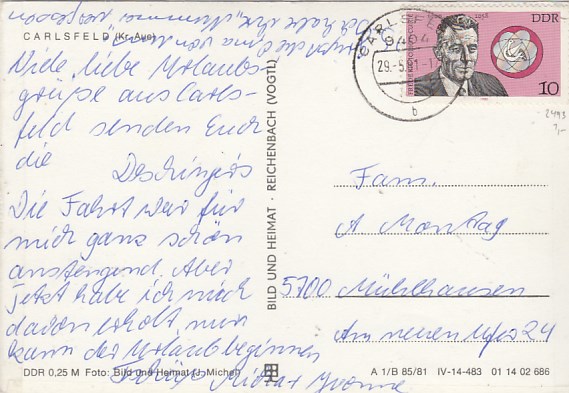 CARLSFELD (Kr. Aue)
Viele liebe Urlaubs-
grüße aus Carls-
feld senden Euch
die
Die Fahrt war für
mich ganz schön
anstrengend. Aber
jetzt habe ich mich
davon erholt, nun
kann der Urlaub beginnen
Yvonne
DDR 0,25 M Foto: Bild und Heimat (J. Michel)
BILD UND HEIMAT · REICHENBACH (VOGTL)
CARLSFELD
9404
29.-5.81-1
b
1958
DDR
10
2493
Fam.
A Montag
5700 Mühlhausen
Am neuen Ufer 24
A 1/B 85/81 IV-14-483 01 14 02 686